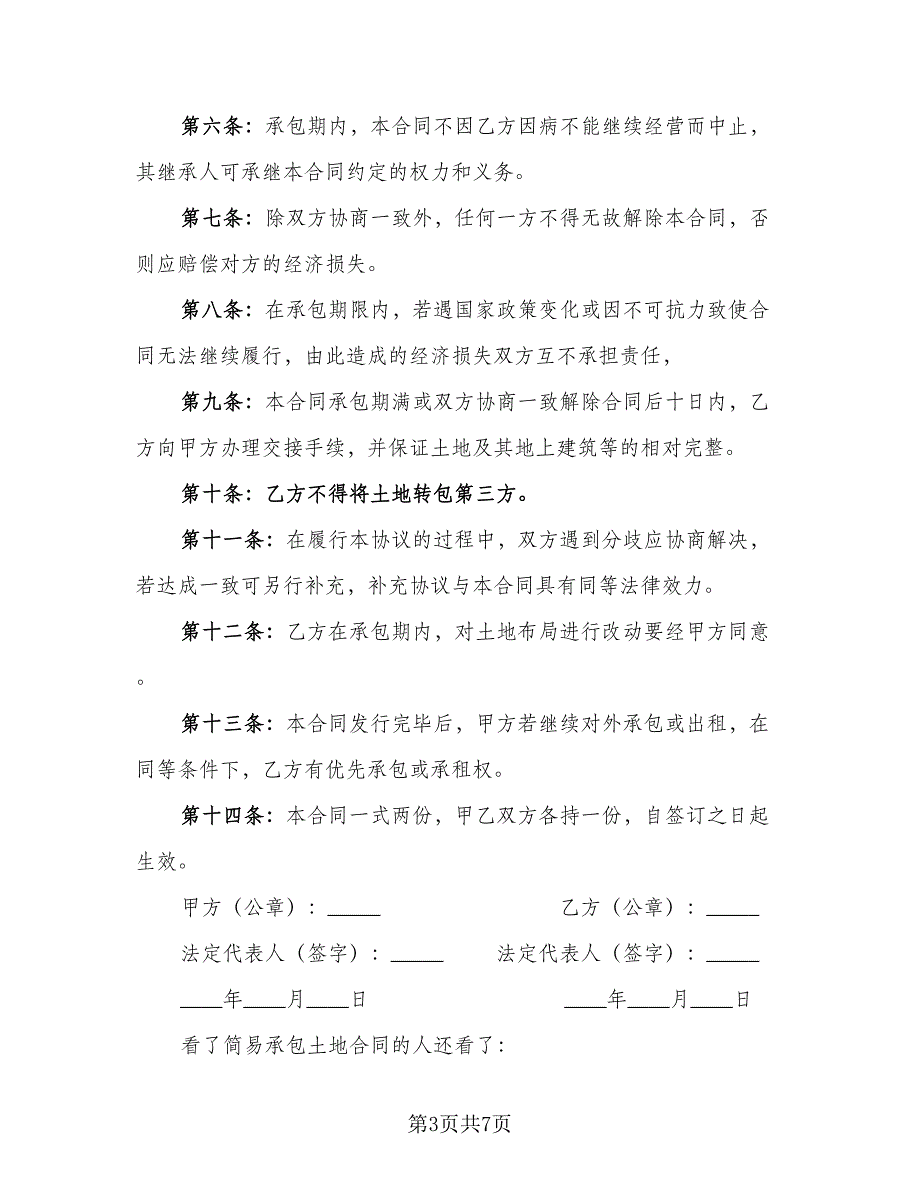 第六条：承包期内，本合同不因乙方因病不能继续经营而中止，
其继承人可承继本合同约定的权力和义务。
第七条：除双方协商一致外，任何一方不得无故解除本合同，否
则应赔偿对方的经济损失。
第八条：在承包期限内，若遇国家政策变化或因不可抗力致使合
同无法继续履行，由此造成的经济损失双方互不承担责任，
第九条：本合同承包期满或双方协商一致解除合同后十日内，乙
方向甲方办理交接手续，并保证土地及其地上建筑等的相对完整。
第十条：乙方不得将土地转包第三方。
第十一条：在履行本协议的过程中，双方遇到分歧应协商解决，
若达成一致可另行补充，补充协议与本合同具有同等法律效力。
第十二条：乙方在承包期内，对土地布局进行改动要经甲方同意
。
第十三条：本合同发行完毕后，甲方若继续对外承包或出租，在
同等条件下，乙方有优先承包或承租权。
第十四条：本合同一式两份，甲乙双方各持一份，自签订之日起
生效。
甲方（公章）：_____ 乙方（公章）：_____
法定代表人（签字）：_____ 法定代表人（签字）：_____
____年____月____日 ____年____月____日
看了简易承包土地合同的人还看了：
第3页共7页